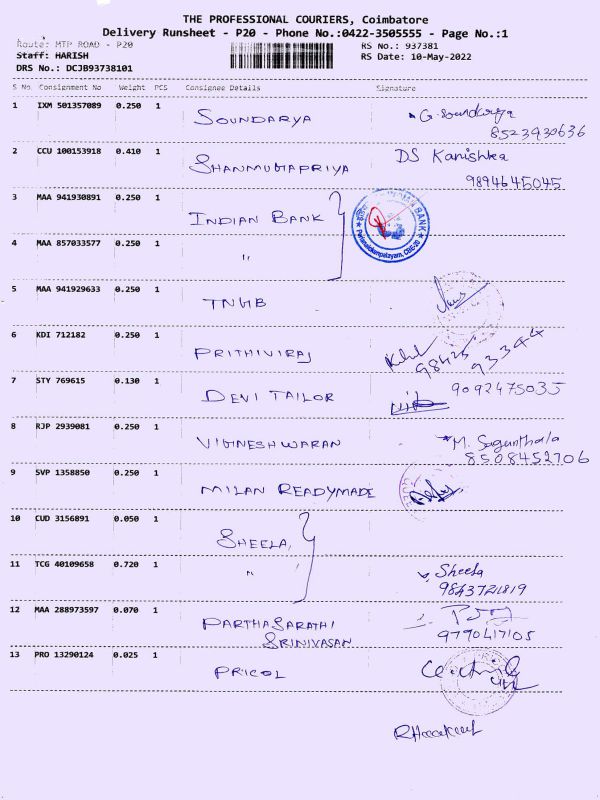 THE PROFESSIONAL COURIERS, Coimbatore
Delivery Runsheet - P20 - Phone No.:0422-3505555 - Page No.:1
Route: MTP ROAD - P20
RS No.: 937381
Staff: HARISH
RS Date: 10-May-2022
DRS No.: DCJB93738101
S No. Consignment No Weight PCS Consignee Details Signature
1 IXM 501357089 0.250 1 SOUNDARYA G. Soundarya
8523930636
2 CCU 100153918 0.410 1 SHANMUGAPRIYA DS Kanishka
9894645045
3 MAA 941930891 0.250 1 INDIAN BANK
INDIAN BANK
4 MAA 857033577 0.250 1 "
5 MAA 941929633 0.250 1 TNGB
6 KDI 712182 0.250 1 PRITHIVIRAJ
98425 93344
7 STY 769615 0.130 1 DEVI TAILOR 9092475035
8 RJP 2939081 0.250 1 VIGNESHWARAN M. Sagunthala
8508452706
9 SVP 1358850 0.250 1 MILAN READYMADE
10 CUD 3156891 0.050 1 SHEELA,
11 TCG 40109658 0.720 1 " Sheela
9843721819
12 MAA 288973597 0.070 1 PARTHASARATHI
SRINIVASAN 9790417105
13 PRO 13290124 0.025 1 PRICOL